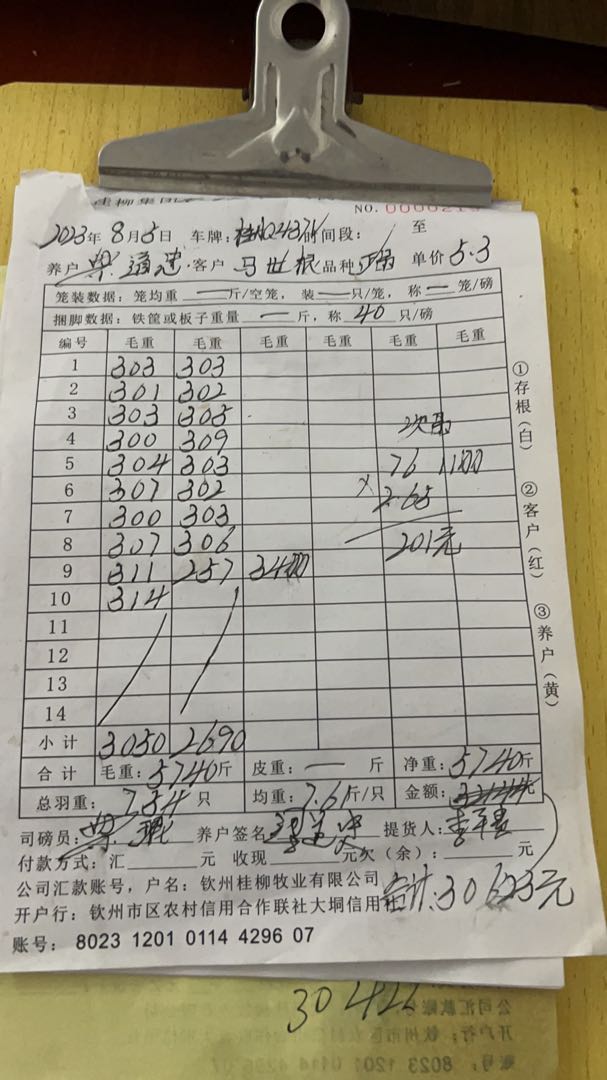 NO.
2023年8月5日 车牌: 时间段: 至
养户 客户 马世根 品种 单价 5.3
笼装数据: 笼均重 — 斤/空笼, 装 — 只/笼, 称 — 笼/磅
捆脚数据: 铁筐或板子重量 — 斤, 称 40 只/磅
编号 毛重 毛重 毛重 毛重 毛重 毛重
1 303 303
2 301 302
3 303 305
4 300 309
5 304 303 76
6 307 302 × 2.65
7 300 303
8 307 306 201元
9 311 257
10 314
11
12
13
14
小计 3050 2690
合计 毛重: 5740斤 皮重: — 斤 净重: 5740斤
总羽重: 754 只 均重: 7.61斤/只 金额:
司磅员: 养户签名 提货人:
付款方式: 汇 元 收现 元欠(余): 元
公司汇款账号, 户名: 钦州桂柳牧业有限公司
开户行: 钦州市区农村信用合作联社大垌信用社
合计: 30623元
账号: 8023 1201 0114 4296 07
①存根(白)
②客户(红)
③养户(黄)